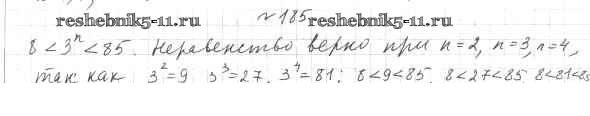 №185
reshebnik5-11.ru reshebnik5-11.ru
8 < 3ⁿ < 85. Неравенство верно при n=2, n=3, n=4,
так как 3²=9. 3³=27. 3⁴=81: 8<9<85. 8<27<85. 8<81<85